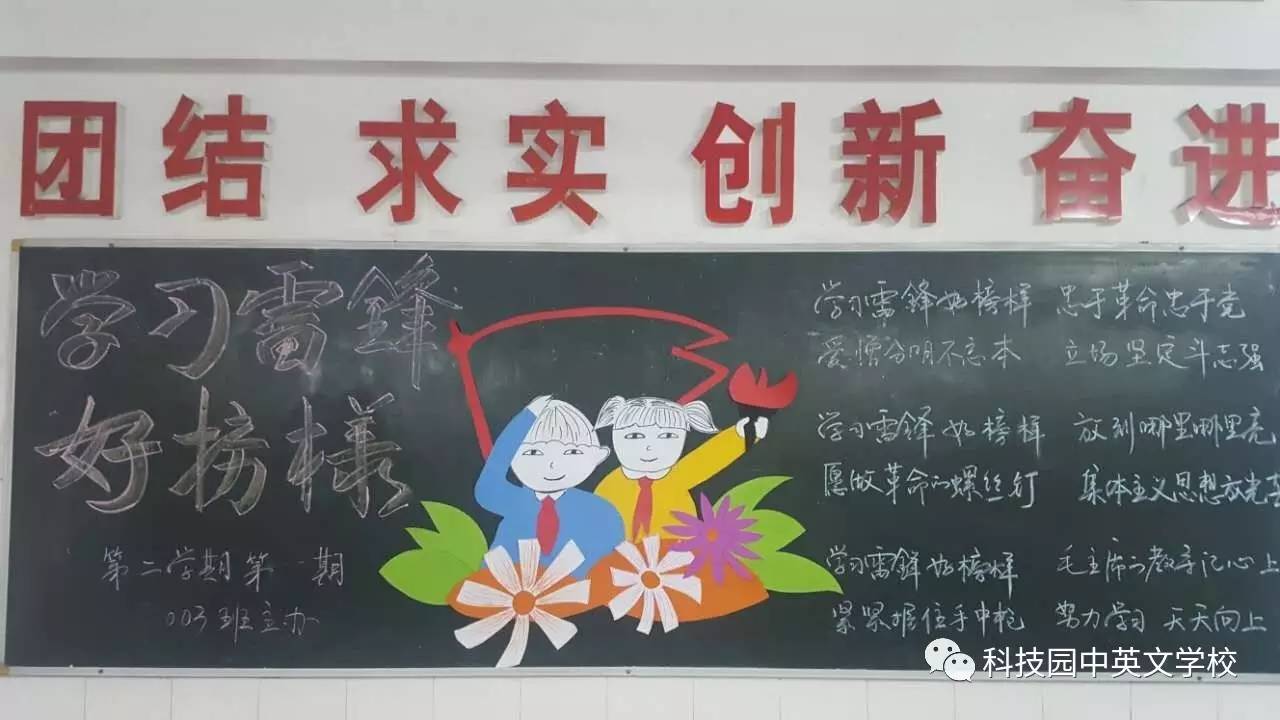 团结 求实 创新 奋进
学习雷鋒
好榜樣
第二学期第一期
003班主办
学习雷鋒好榜样 忠于革命忠于党
爱憎分明不忘本 立场坚定斗志强
学习雷鋒好榜样 放到哪里哪里亮
愿做革命的螺丝钉 集体主义思想放光芒
学习雷鋒好榜样 毛主席的教导记心上
紧紧握住手中枪 努力学习天天向上
科技园中英文学校